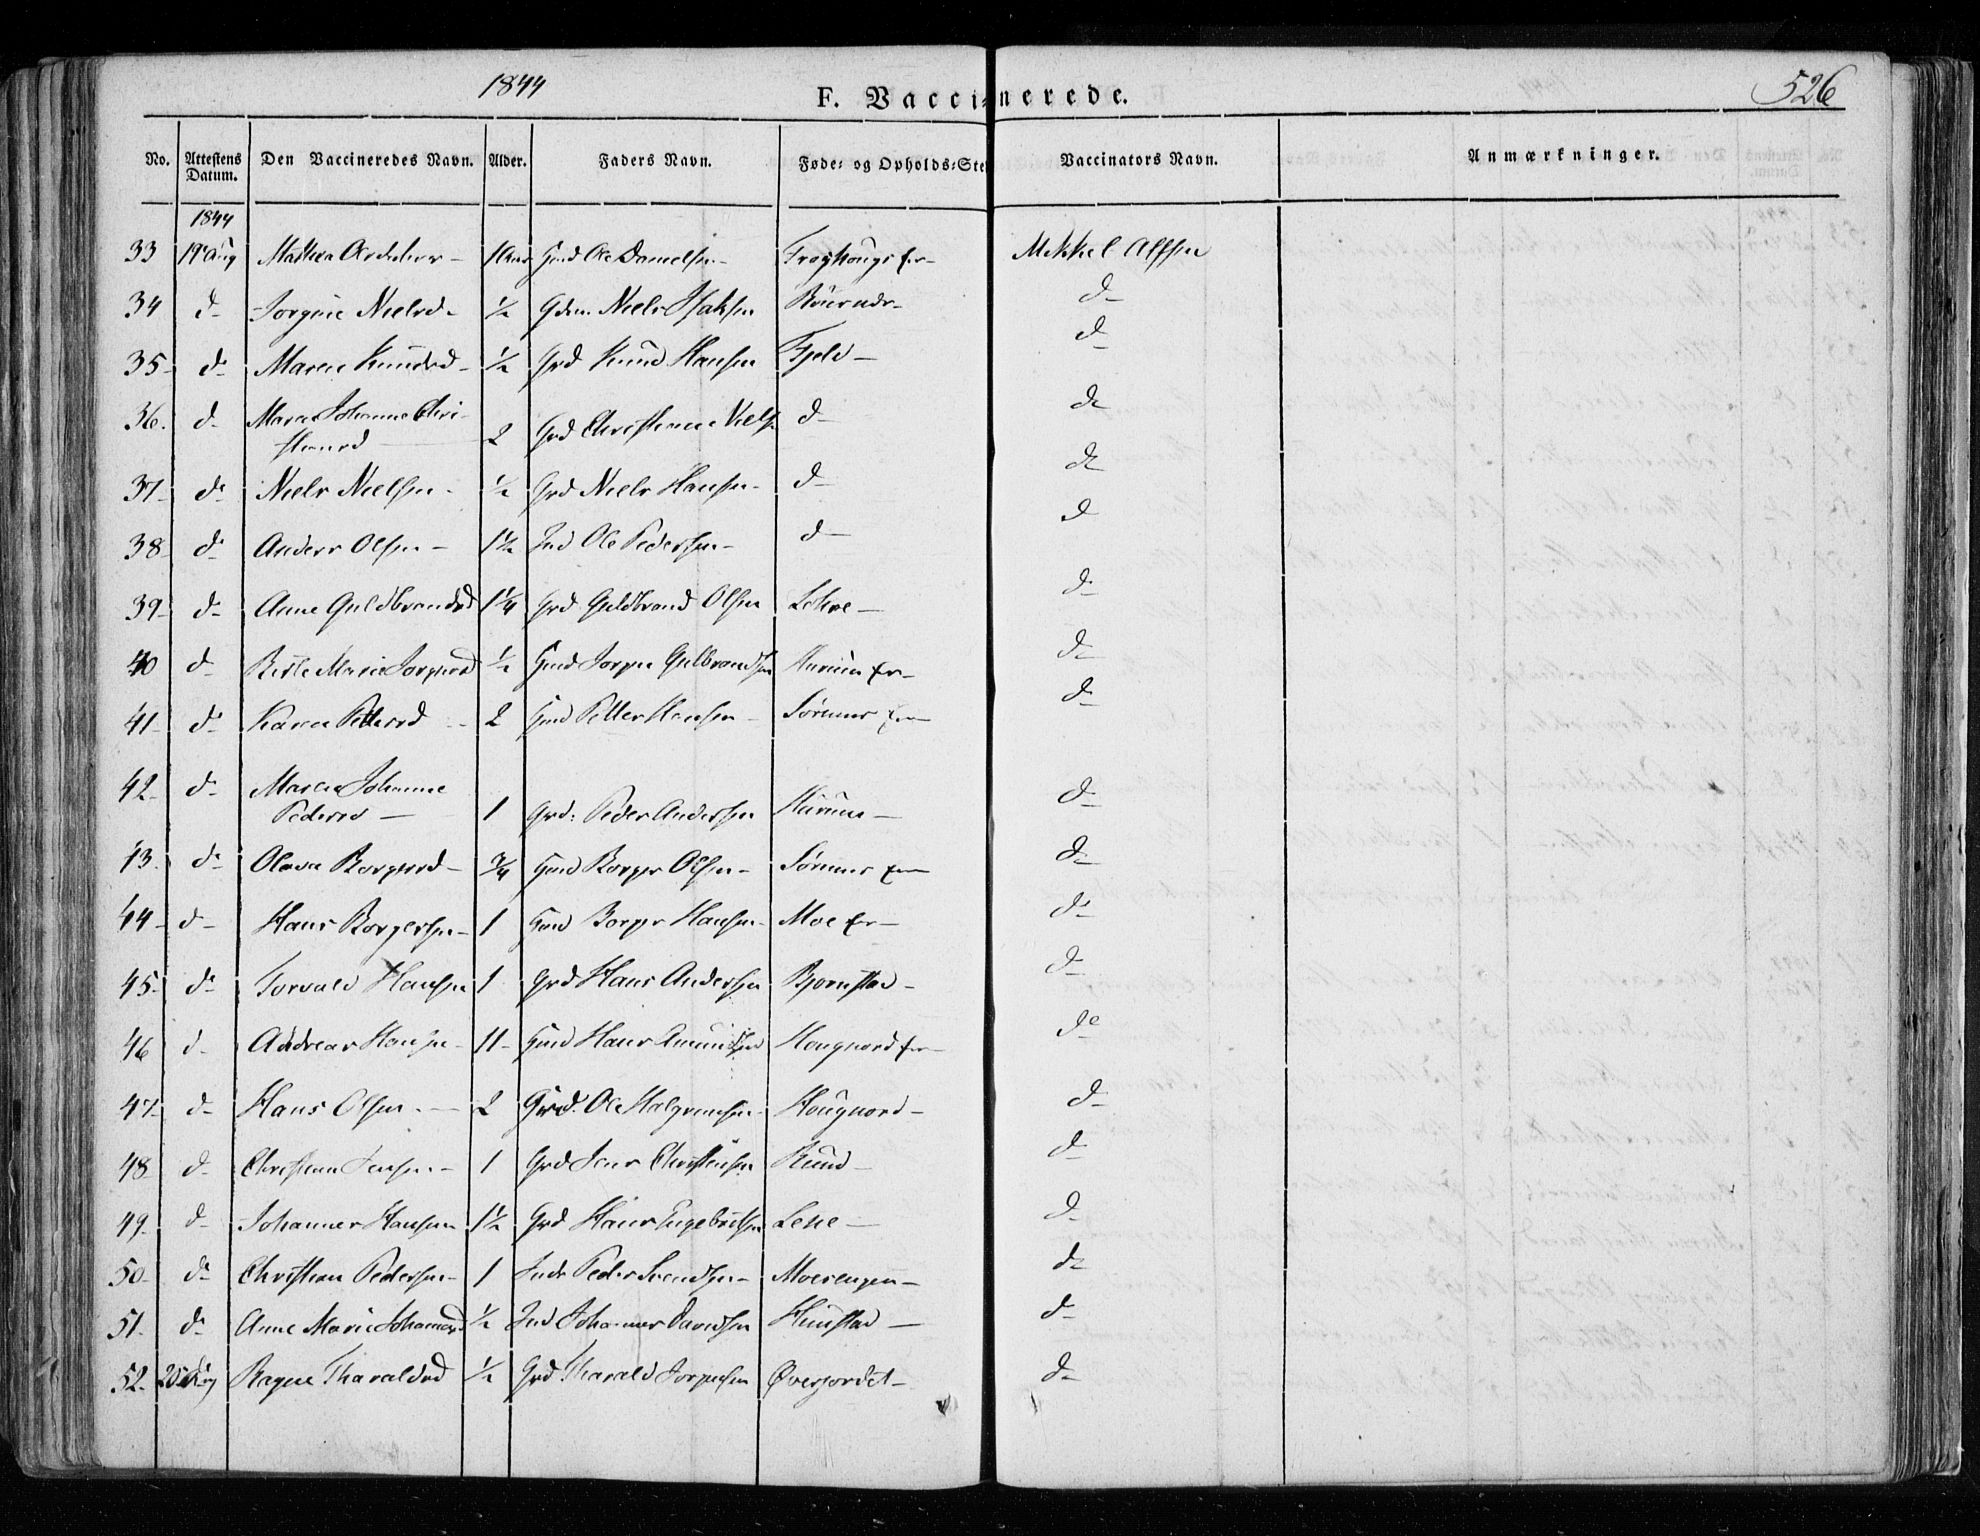 1844
F. Vaccinerede.
526
No. Attestens Datum. Den Vaccineredes Navn. Alder. Faders Navn. Føde- og Opholds-Ste Vaccinators Navn. Anmærkninger.
1844
33 19 Aug Mathea 1 Aar Gmd Ole Danielsen Mikkel Alfsen
34 d Jorgine Nielsd ½ Gdm. Niels Isaksen d
35 d Maren Knudsd ½ Grd Knud Hansen Fjeld d
36. d Maren Johanne Chri-
stiansd 2 Grd Christian Niels d d
37 d Niels Nielsen ½ Grd Niels Hansen d d
38 d Anders Olsen 1½ Ind Ole Pedersen d d
39 d Anne Guldbrandsd 1¼ Grd Guldbrand Olsen Lohre d
40 d Marie Jorgensd ½ Gmd Jorgen Gulbrandsen Hurum d
41 d Karen Pettersd 2 Gmd Petter Hansen Sørums d
42 d Maren Johanne
Pedersd 1 Grd: Peder Andersen Hurum d
43. d Olava Borgersd ¾ Gmd Borger Olsen Sørums d
44 d Hans Borgersen 1 Gmd Borger Hansen Moe d
45 d Torvald Hansen 1 Grd Hans Andersen Bjørnstad d
46 d Andreas Hansen 11 Gmd Hans Amundsen Hougnord d
47 d Hans Olsen 2 Grd. Ole Halgrimsen Hougnord d
48 d Christian Jensen 1 Grd Jens Christensen Rund d
49 d Johannes Hansen 1½ Grd Hans Engebretsen Lene d
50 d Christian Pedersen 1 Ind Peder Svendsen Moesengen d
51 d Anne Marie Johannesd ½ Ind Johannes Davidsen d
52 25 Aug Ragne Tharaldsd ½ Grd Tharald Jorgensen Øverjordet d